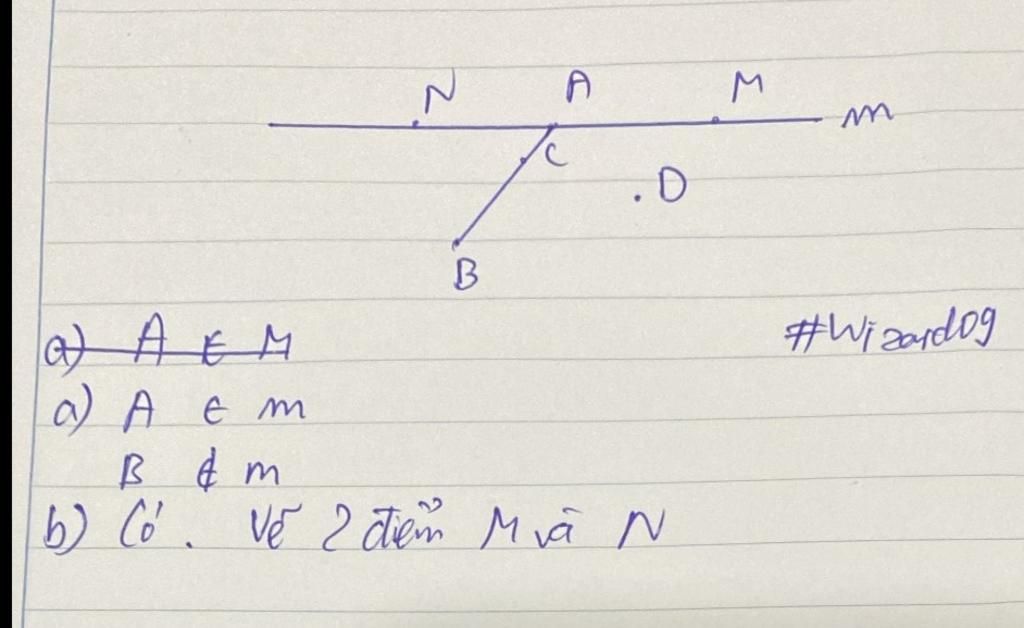 N A M m
C
. D
B
a) A ∈ M
#Wizard09
a) A ∈ m
B ∉ m
b) Có. Vẽ 2 điểm M và N